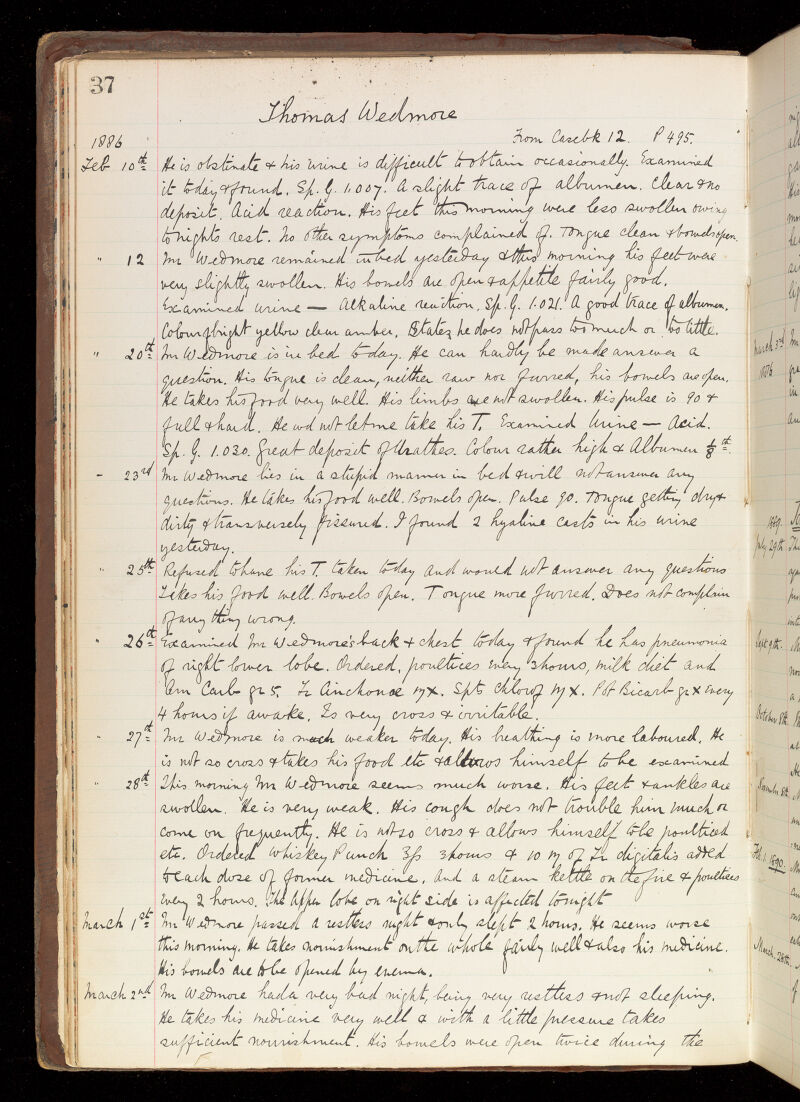 37
Thomas Wedmore
1886 From Casebk 12. P 495.
Feb 10th He is obstinate & his urine is difficult to obtain occasionally. Examined
it today & found. Sp. G. 1.007. A slight trace of albumen. Clear & no
deposit. Acid reaction. His feet this morning were less swollen owing
to nights rest. No other symptoms complained of. Tongue clean & bowels open.
" 12 Mr Wedmore remained in bed yesterday & this morning his feet were
very slightly swollen. His bowels are open & appetite fairly good.
Examined urine — Alkaline reaction. Sp. G. 1.021. A good trace of albumen.
Colour bright yellow clear amber. States he does not pass too much or too little.
" 20th Mr Wedmore is in bed today. He can hardly be made answer a
question. His tongue is clean, neither raw nor furred, his bowels are open.
He takes his food very well. His limbs are not swollen. His pulse is 90 &
full & hard. He wd not let me take his T. Examined Urine — Acid.
Sp. G. 1.030. Great deposit of Urathes. Colour rather high & Albumen 1/8th.
" 23rd Mr Wedmore lies in a stupid manner in bed & will not answer any
questions. He takes his food well. Bowels open. Pulse 90. Tongue getting dry &
dirty & transversely fissured. I found 2 hyaline casts in his urine
yesterday.
" 25th Refused to have his T. taken today and would not answer any questions
Takes his food well. Bowels open. Tongue more furred. Does not complain
of any thing wrong.
" 26th Examined Mr Wedmore's back & chest today & found he has pneumonia
of right lower lobe. Ordered, poultices every 3 hours, milk diet and
Am Carb gr 5. Tr Cinchonae ♏x. Spts Chlorof ♏x. Pot Bicarb gr x every
4 hours if awake. Is very cross & irritable.
" 27th Mr Wedmore is much weaker today. His breathing is more laboured. He
is not so cross & takes his food etc & allows himself to be examined
" 28th This morning Mr Wedmore seems much worse. His feet & ankles are
swollen. He is very weak. His cough does not trouble him much or
come on frequently. He is not so cross & allows himself to be poulticed
etc. Ordered Whiskey Punch 3 hours & 10 ♏ of Tr digitalis added
to each dose of former medicine. and a steam kettle on the fire & poultices
every 2 hours. The upper lobe on right side is affected tonight
March 1st Mr Wedmore passed a restless night & only slept 2 hours. He seems worse
this morning. He takes nourishment on the whole fairly well & also his medicine.
His bowels are to be opened by enema.
March 2nd Mr Wedmore had a very bad night, being very restless & not sleeping.
He takes his medicine very well & with a little pressure takes
sufficient nourishment. His bowels were open twice during the
March 3rd
1886
1889
July 29th
Sept 9th.
October 8th.
Feb. 1. 1890.
March. 28th.